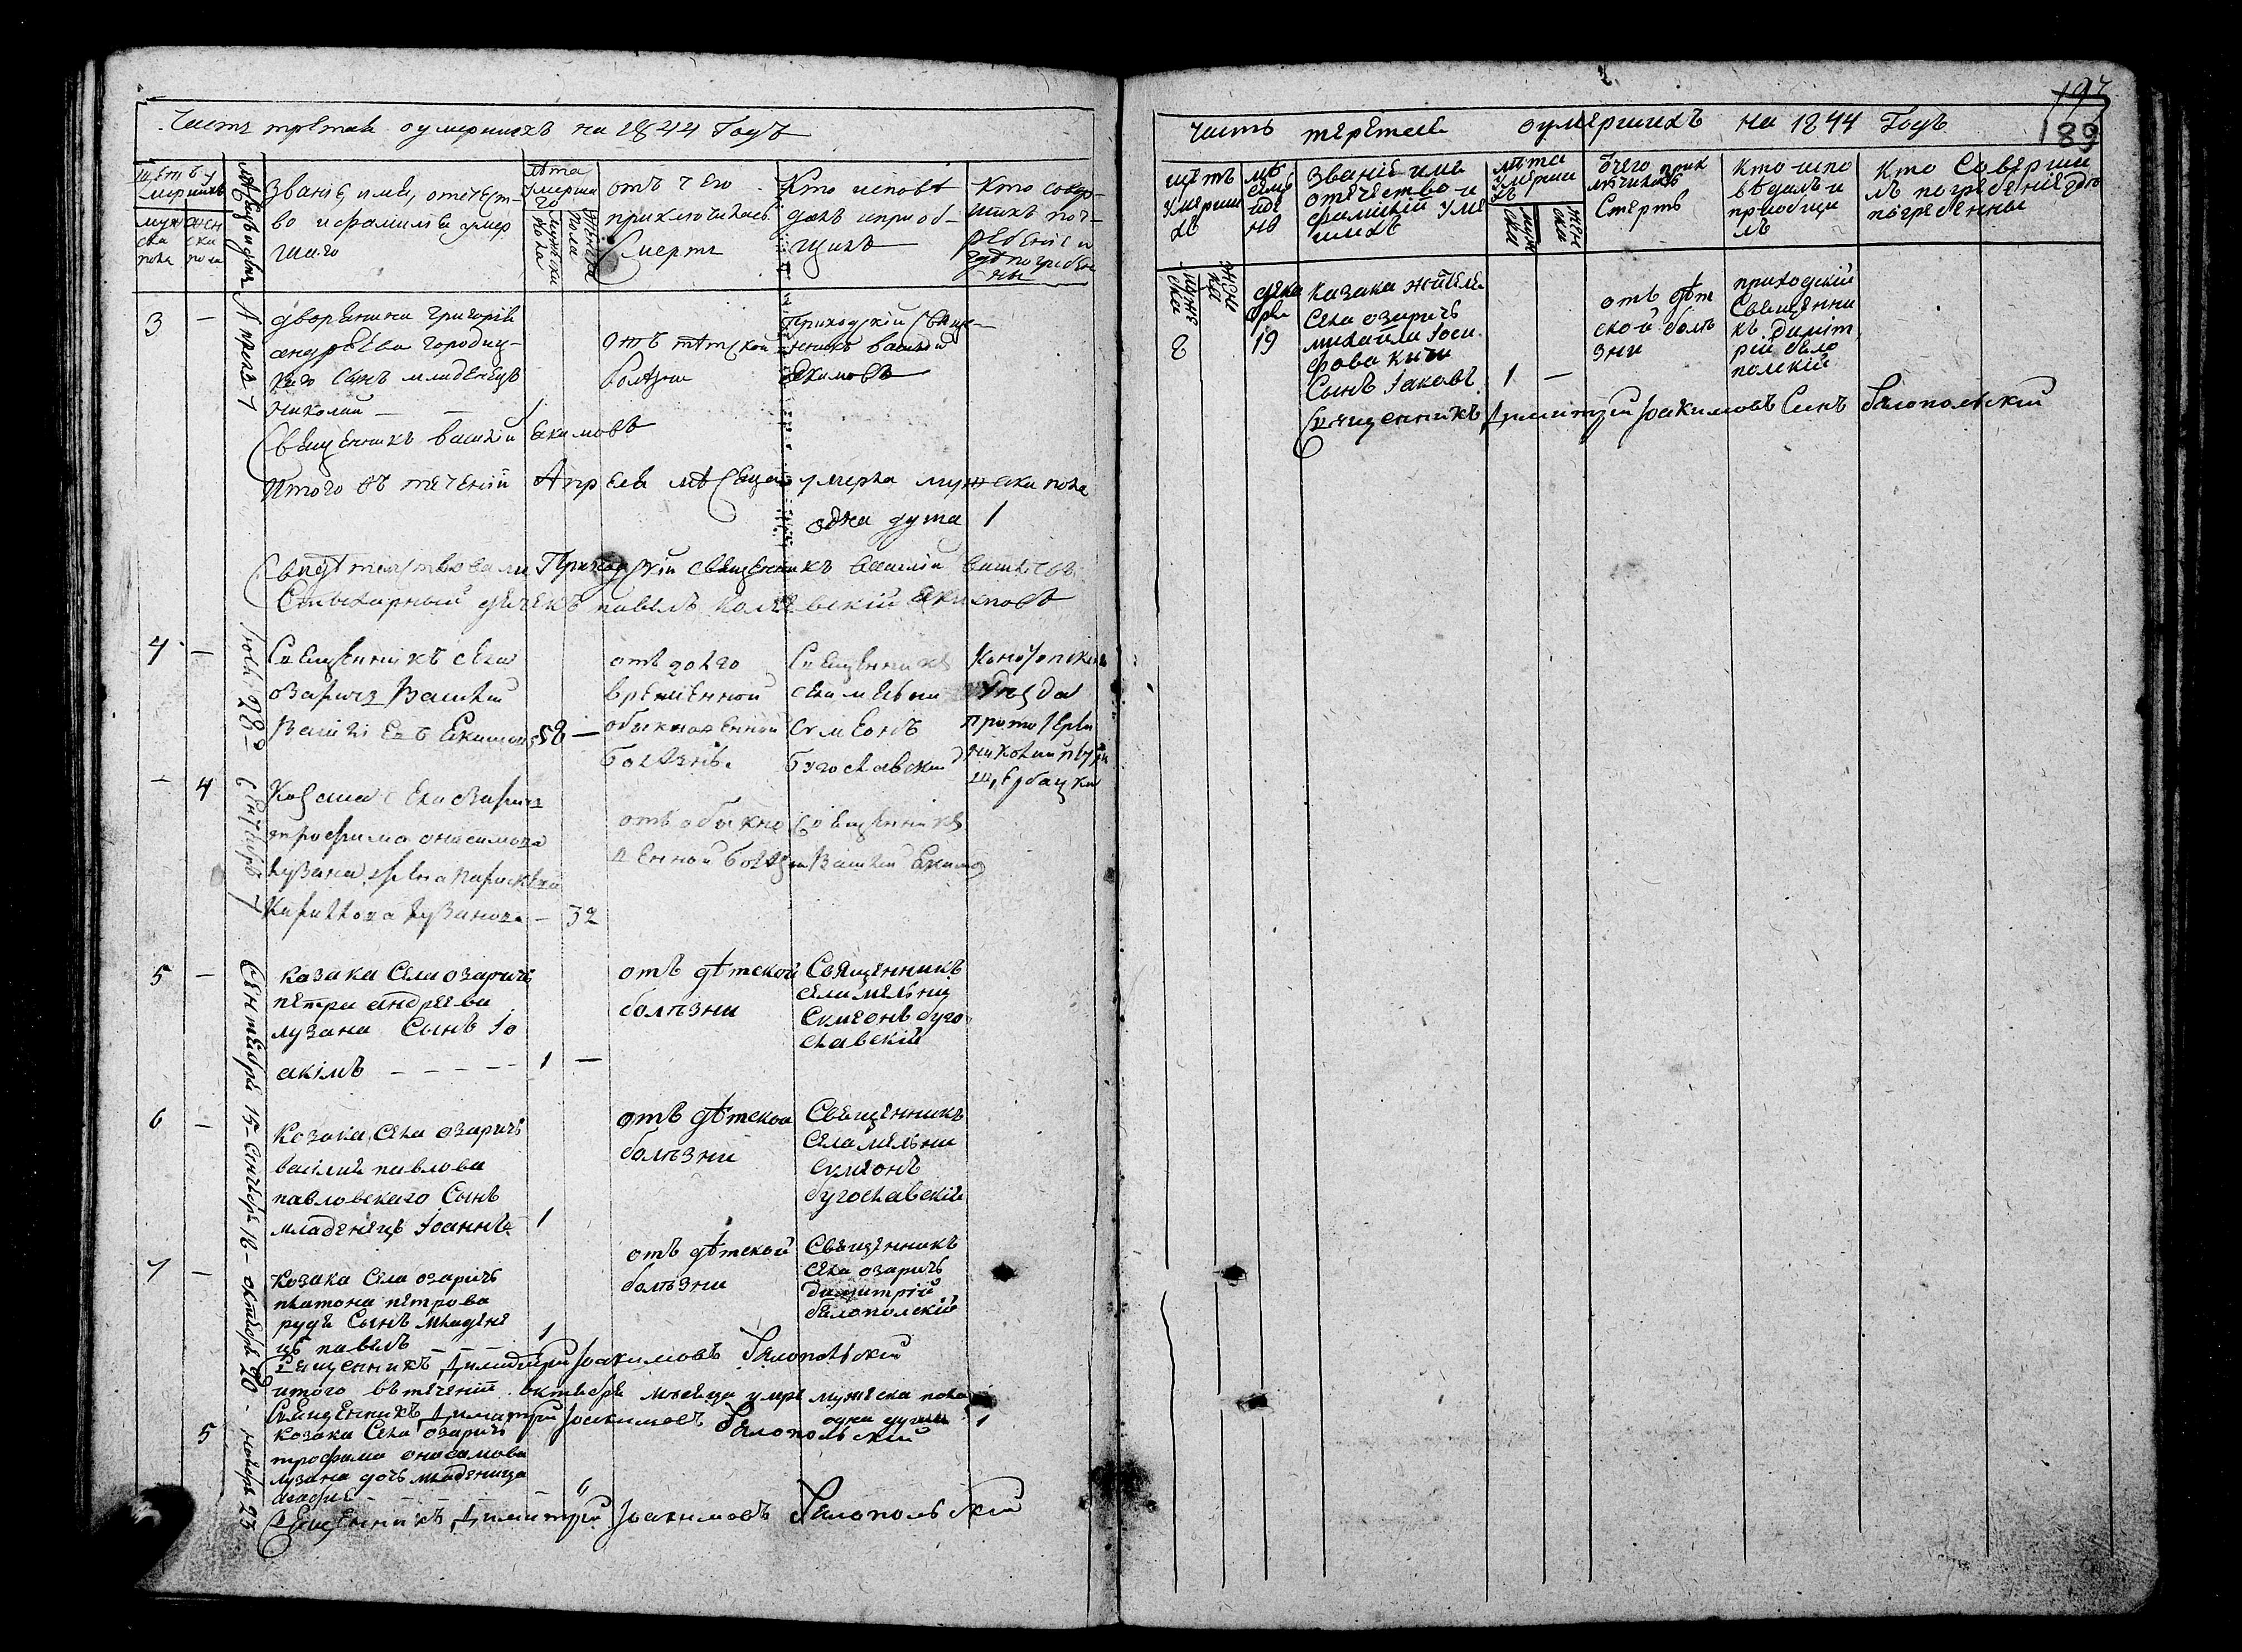 Часть третая о умершихъ на 1844 Годъ
щетъ умершихъ
муж ска пола
жен ска пола
Званіе, имя, отечест-
во и фамилія умер
шаго
лѣта умерша го
Мужска пола
Женска пола
отъ чего
приключилась
Смерть
Кто исповѣ
далъ и приоб-
щилъ
Кто совер-
шилъ пог-
ребеніе и
гдѣ погребе
ны
3 —
Апреля 7
дворянина Григорія
андреева городис-
каго сынъ младенецъ
Николай — — 1
отъ дѣтской
болѣзни
Приходскій Свящ-
енникъ Василій
Екимовъ
Священникъ Василій Екимовъ
Итого въ теченіи Апреля мѣсяца умерла мужеска пола
одна душа 1
Свидѣтельствовали Приходскій священникъ Василій Василіевъ
Стихарный дячекъ павелъ Екимовъ
4 —
Іюля 28
Священникъ села
Озаричъ Василій
Василіевъ Екимовъ 58 —
отъ долго
временной
обыкновенной
болѣзнѣ.
Священникъ
села мельни
Сумеонъ
Бугославский
Конотопскаго
уезда
протоіерей
николай
— 4
Сентабрь 7
Козака села Озаричъ
трофима онисимова
лузана жена Параскевія
Кирилова Лузанова — 32
отъ обыкно
венной болѣзни
Священникъ
Василий Екимов
5 —
Сентября 15
козака села озаричъ
петра андреева
лузана Сынъ Іо
акімъ — — — — — 1 —
отъ дѣтской
болѣзни
Священникъ
села мельни
Симеонъ буго
славскій
6 —
Сентября 16
Козака, села озаричъ
василия павлова
павловскаго Сынъ
младенецъ Іоаннъ 1
отъ дѣтской
болѣзни
Священникъ
села мельни
Сумеонъ
бугославскій
7 —
октября 20
Козака села озаричъ
платона петрова
рудя Сынъ младене
цъ павелъ — — 1
отъ дѣтской
болѣзни
Священникъ
села озаричъ
димитрій
бялополскій
Священникъ Димитрій Іоакимовъ Бялопольскій
итого въ теченій октября мѣсяца умре мужеска пола
одна душа 1
Священникъ Димитрій Іоакимовъ Бялопольский
5
ноября 23
козака села озаричъ
трофима онисимова
лузана дочь младеница
агафія — — —
Священникъ Димитрій Іоакимовъ Бялопольскій
197
189
часть теретая о умершихъ на 1844 Годъ
щетъ
умерши
хъ
муже ска
жене ка
мѣ
сяцъ
и де
нь
Званіе имя
отечество и
фамилій уме
шихъ
лѣта
умерши
хъ
муж ска
жен ска
отчего прик
лючилась
Смерть
Кто испо
ведалъ и
приобщи
лъ
Кто Соверши
лъ погребеніе гдѣ
погребенны
8
дека
бря
19
Казака жителя
Села озаричъ
михайла Іоси
фова
Сынъ Іаковъ 1 —
отъ дѣт
ской болѣ
зни
приходскій
Священни
къ димит
рій бяло
полскій
Священникъ Димитрій Іоакимовъ Синъ Бялопольскій